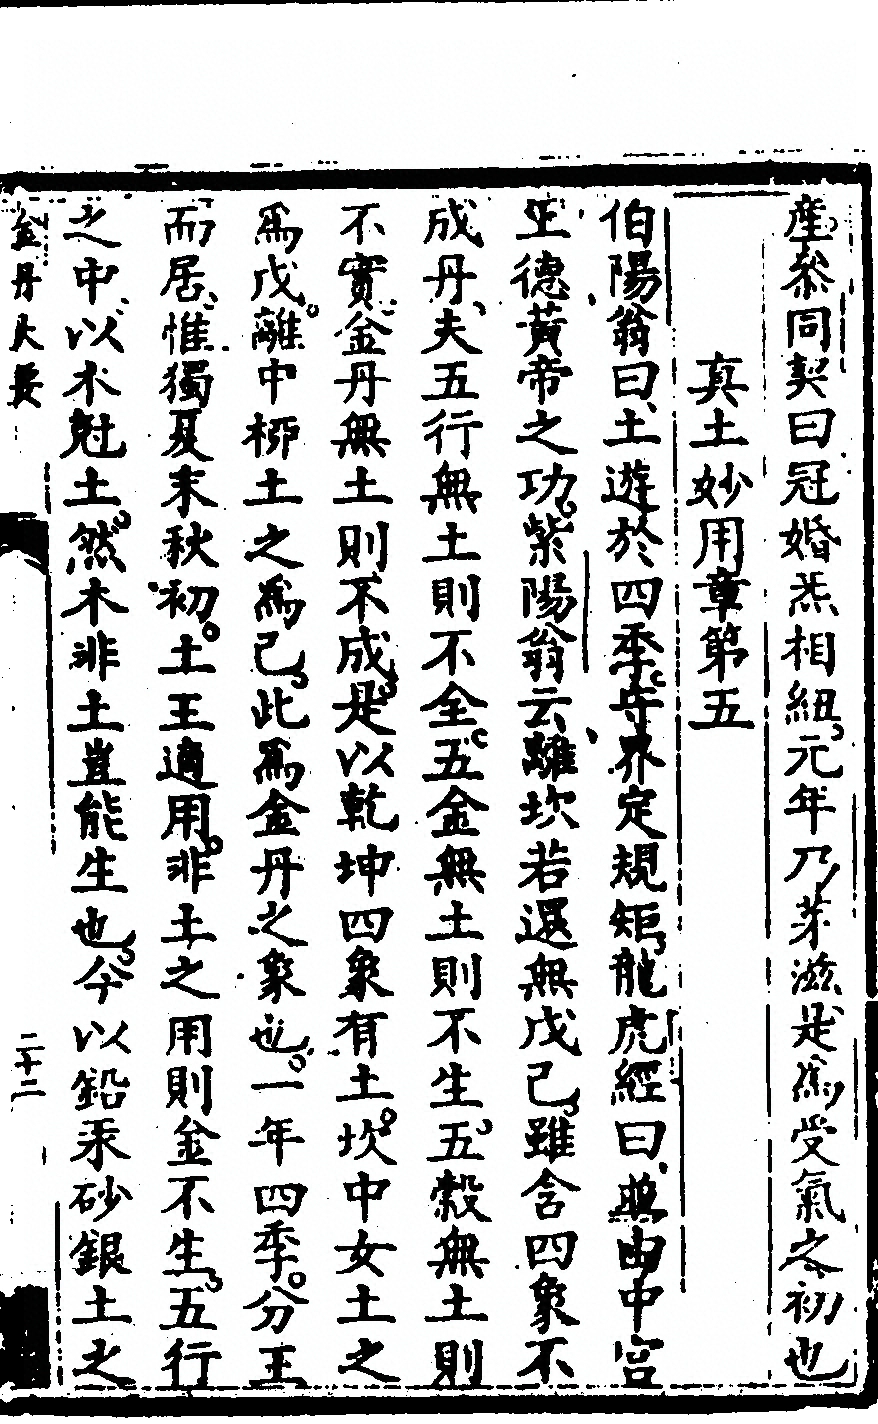 産叅同契曰冠婚炁相紐元年乃芽滋是爲受氣之初也
真土妙用章第五
伯陽翁曰土遊於四季守界定規矩龍虎經曰由中宮
土德黃帝之功紫陽翁云離坎若還無戊己雖含四象不
成丹夫五行無土則不全五金無土則不生五穀無土則
不實金丹無土則不成是以乾坤四象有土坎中女土之
爲戊離中桺土之爲己此爲金丹之象也一年四季分王
而居惟獨夏末秋初土王適用非土之用則金不生五行
之中以木尅土然木非土豈能生也今以鉛汞砂銀土之
金丹大要
二十二